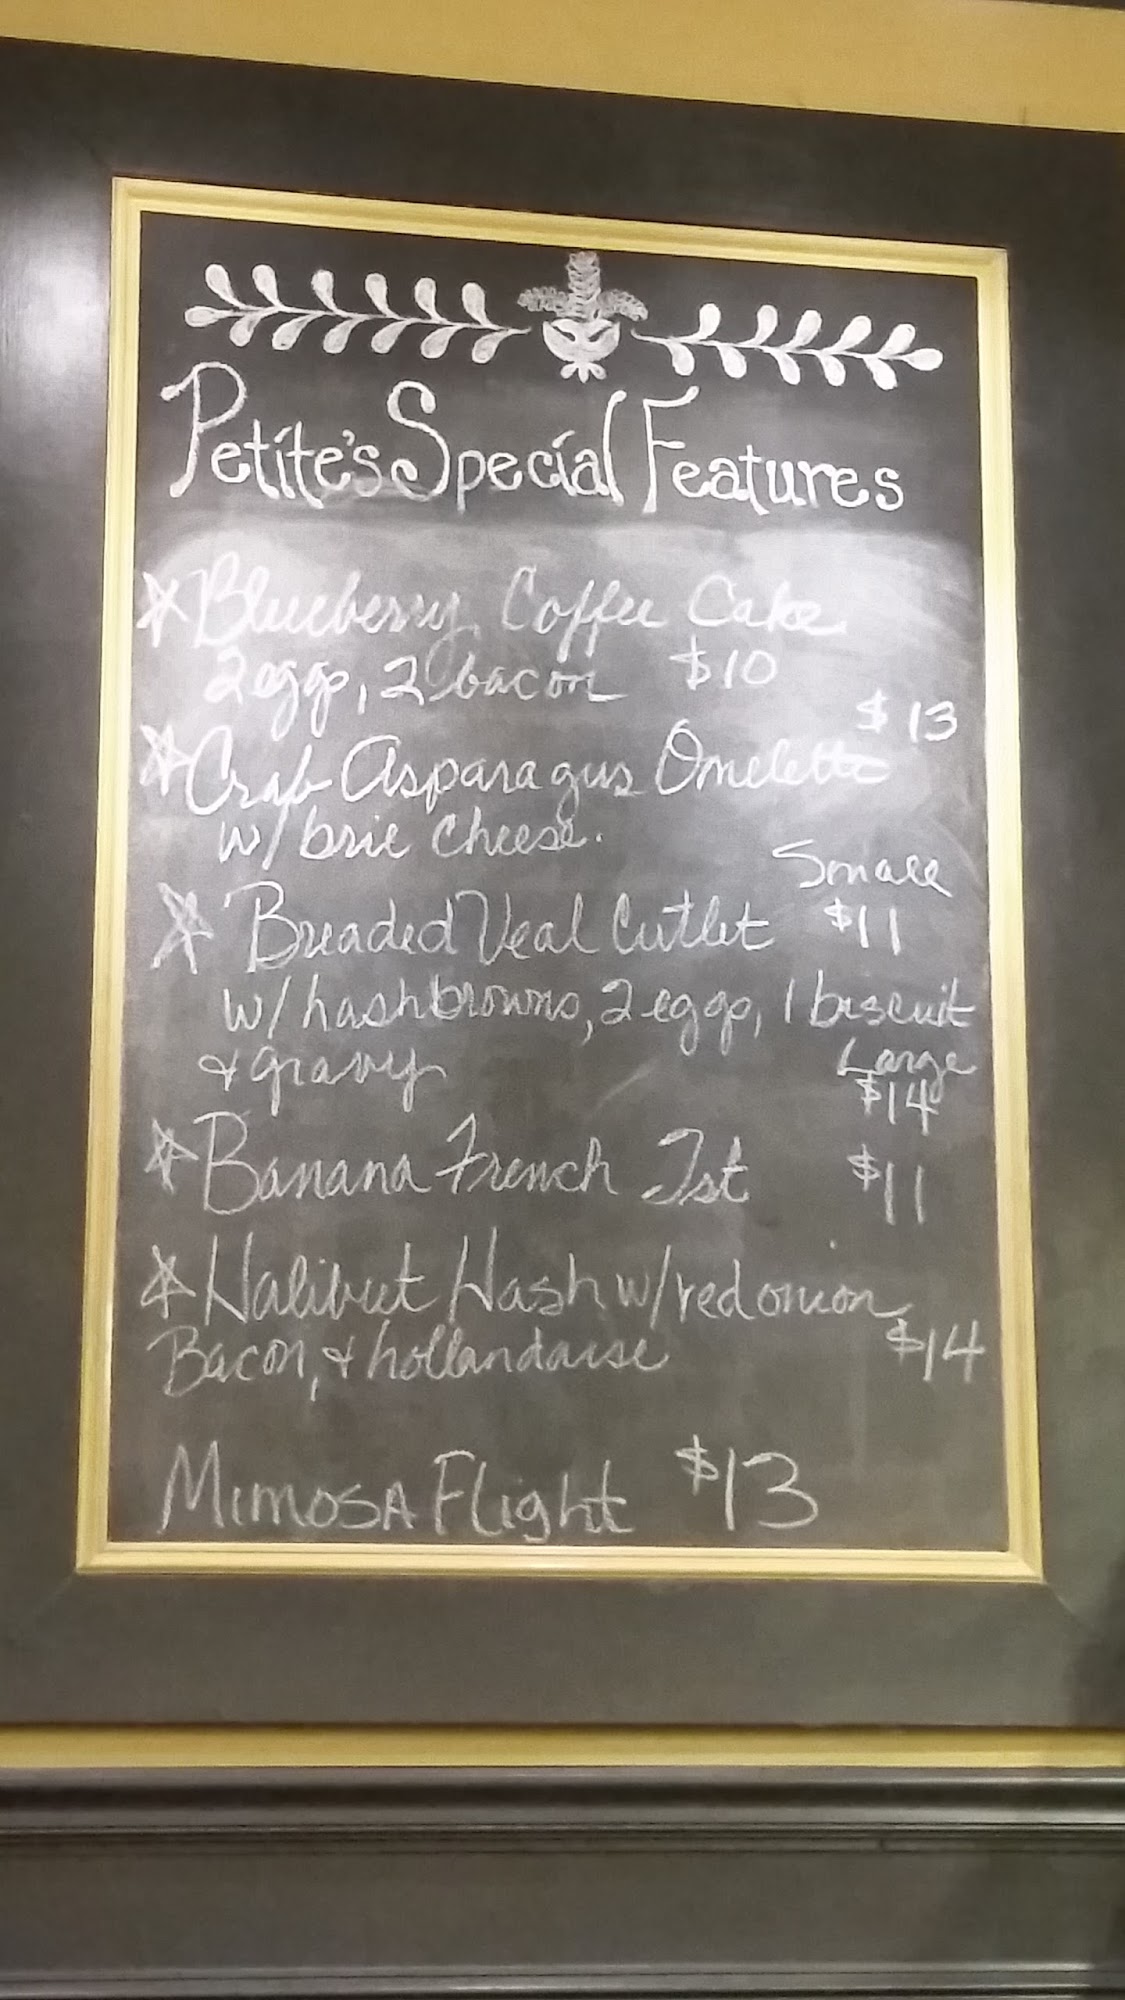 Petite's Special Features
Blueberry Coffee Cake
2 eggs, 2 bacon $10
$13
Crab Asparagus Omelette
w/ brie cheese.
Small
Breaded Veal Cutlet $11
w/ hashbrowns, 2 eggs, 1 biscuit
& gravy Large
$14
Banana French Tst $11
Halibut Hash w/ red onion
Bacon, & hollandaise $14
Mimosa Flight $13